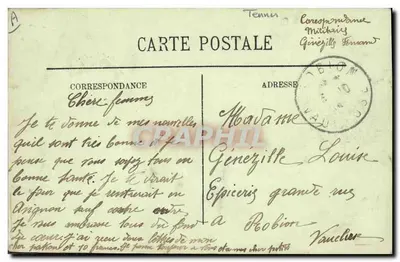 Tennis
Correspondance
Militaire
Génézille Fernand
CARTE POSTALE
CORRESPONDANCE
ADRESSE
Chère femme
Je te donne de mes nouvelles
qui sont très bonne et je
pense que vous soyez tous en
bonne santé. Je te dirait
le jour que je rentrerait en
Avignon sauf contre ordre
Je vous embrasse tous du fond
du cœur j'ai reçu deux lettres de mon
et 10 francs
Madame
Génézille Louise
Epicerie grande rue
a Robion
Vaucluse